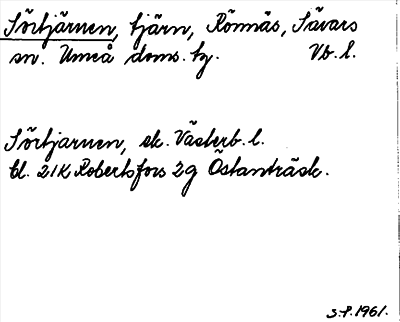 Sörtjärnen, tjärn, Rönnäs, Sävars
sn. Umeå doms. tg. Vb. l.
Sörtjarnen, ek. Västerb. l.
bl. 21K Robertsfors 2g Östanträsk.
1961.